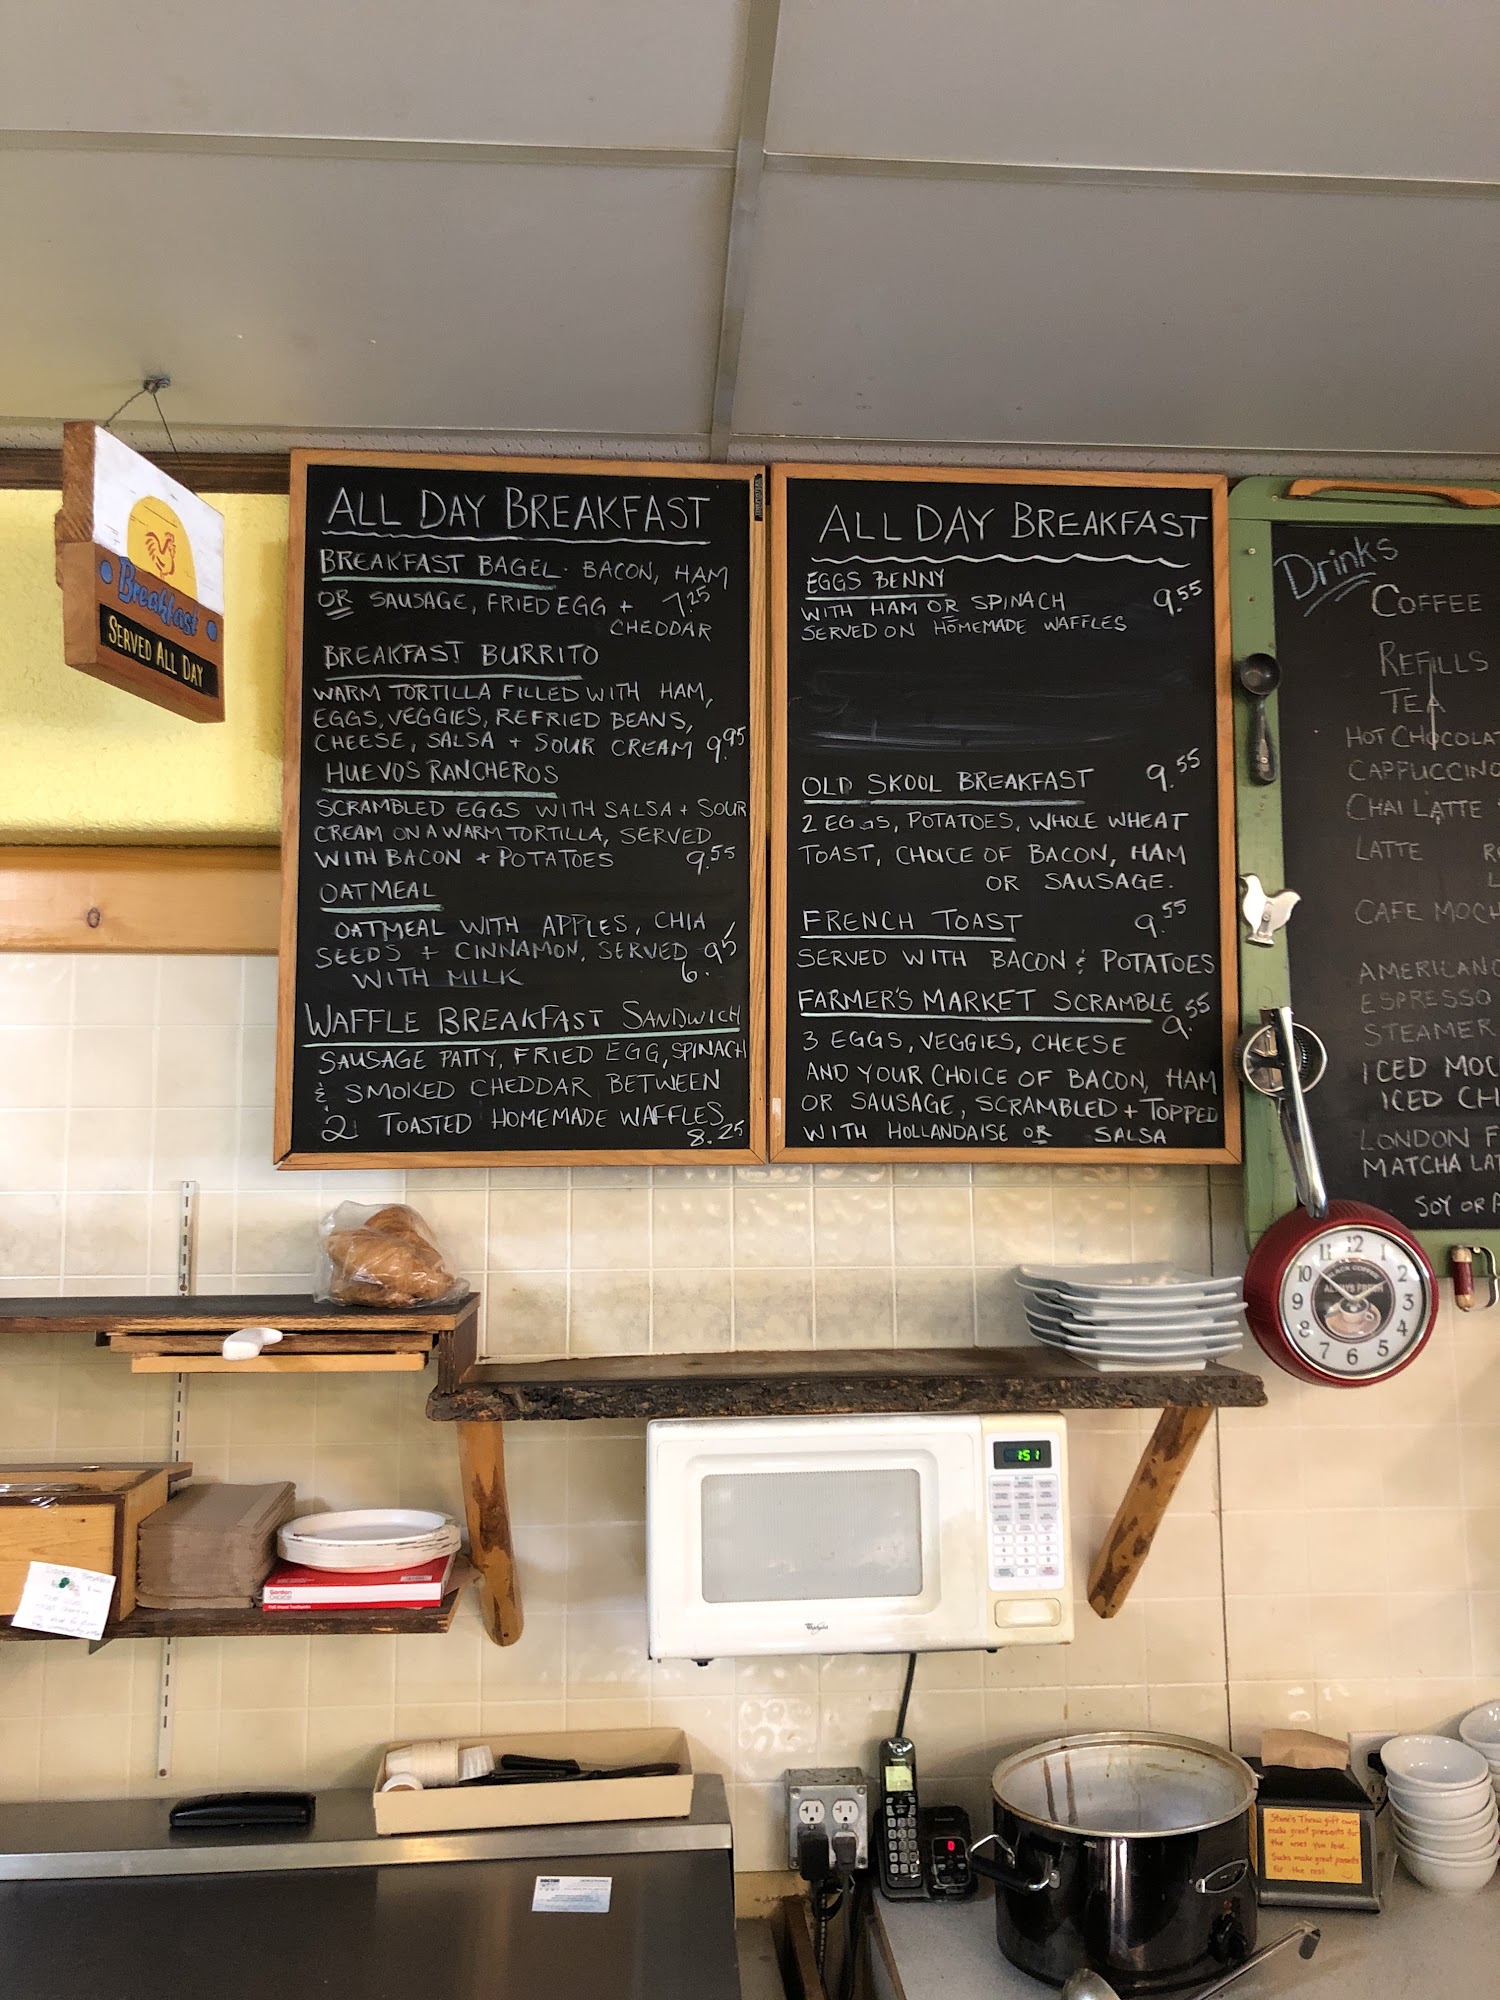 Breakfast
SERVED ALL DAY
ALL DAY BREAKFAST
BREAKFAST BAGEL. BACON, HAM
OR SAUSAGE, FRIED EGG + 7.25
CHEDDAR
BREAKFAST BURRITO
WARM TORTILLA FILLED WITH HAM,
EGGS, VEGGIES, REFRIED BEANS,
CHEESE, SALSA + SOUR CREAM 9.95
HUEVOS RANCHEROS
SCRAMBLED EGGS WITH SALSA + SOUR
CREAM ON A WARM TORTILLA, SERVED
WITH BACON + POTATOES 9.55
OATMEAL
OATMEAL WITH APPLES, CHIA
SEEDS + CINNAMON, SERVED
WITH MILK 6.95
WAFFLE BREAKFAST SANDWICH
SAUSAGE PATTY, FRIED EGG, SPINACH
& SMOKED CHEDDAR BETWEEN
2 TOASTED HOMEMADE WAFFLES
8.25
ALL DAY BREAKFAST
EGGS BENNY
WITH HAM OR SPINACH 9.55
SERVED ON HOMEMADE WAFFLES
OLD SKOOL BREAKFAST 9.55
2 EGGS, POTATOES, WHOLE WHEAT
TOAST, CHOICE OF BACON, HAM
OR SAUSAGE.
FRENCH TOAST 9.55
SERVED WITH BACON & POTATOES
FARMER'S MARKET SCRAMBLE 9.55
3 EGGS, VEGGIES, CHEESE
AND YOUR CHOICE OF BACON, HAM
OR SAUSAGE, SCRAMBLED + TOPPED
WITH HOLLANDAISE OR SALSA
Drinks
COFFEE
REFILLS
TEA
HOT CHOCOLAT
CAPPUCCINO
CHAI LATTE
LATTE
CAFE MOCH
AMERICANO
ESPRESSO
STEAMER
ICED MOC
ICED CH
LONDON F
MATCHA LAT
SOY OR A
12
1
2
3
4
5
6
7
8
9
10
11
BLACK COFFEE
ALWAYS FRESH
1:51
Whirlpool
Gordon
CHOICE
DOCTOR
Stone's Throw gift cards
make great presents for
the ones you love.
Socks make great presents
for the rest.